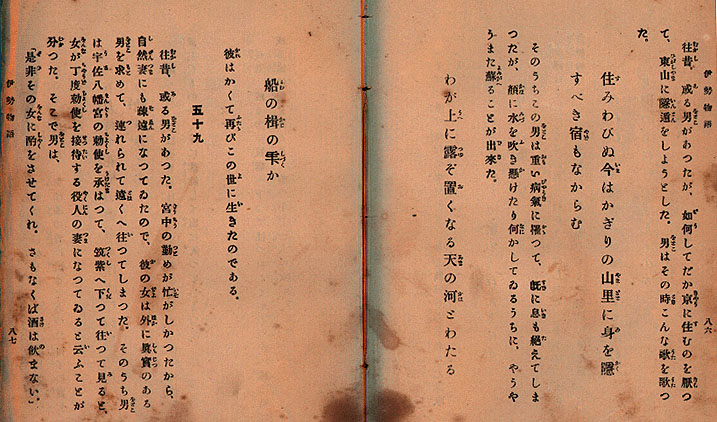 伊勢物語
八六
往昔、或る男があつたが、如何してだか京に住むのを厭つ
て、東山に隱遁をしようとした。男はその時こんな歌を歌つ
た。
住みわびぬ今はかぎりの山里に身を隱
すべき宿もなからむ
そのうちこの男は重い病氣に罹つて、既に息も絶えてしま
つたが、顏に水を吹き懸けたり何かしてゐるうちに、やうや
うまた蘇ることが出來た。
わが上に露ぞ置くなる天の河とわたる
船の楫の雫か
彼はかくて再びこの世に生きたのである。
五十九
往昔、或る男があつた。宮中の勤めが忙がしかつたから、
自然妻にも疎遠になつてゐたので、彼の女は外に眞實のある
男を求めて、連れられて遠くへ往つてしまつた。そのうち男
は宇佐八幡宮の勅使を承はつて、筑紫へ下つて往つて見ると、
女が丁度勅使を接待する役人の妻になつてゐると云ふことが
分つた。そこで男は、
「是非その女に酌をさせてくれ。さもなくば酒は飮まない。」
伊勢物語
八七